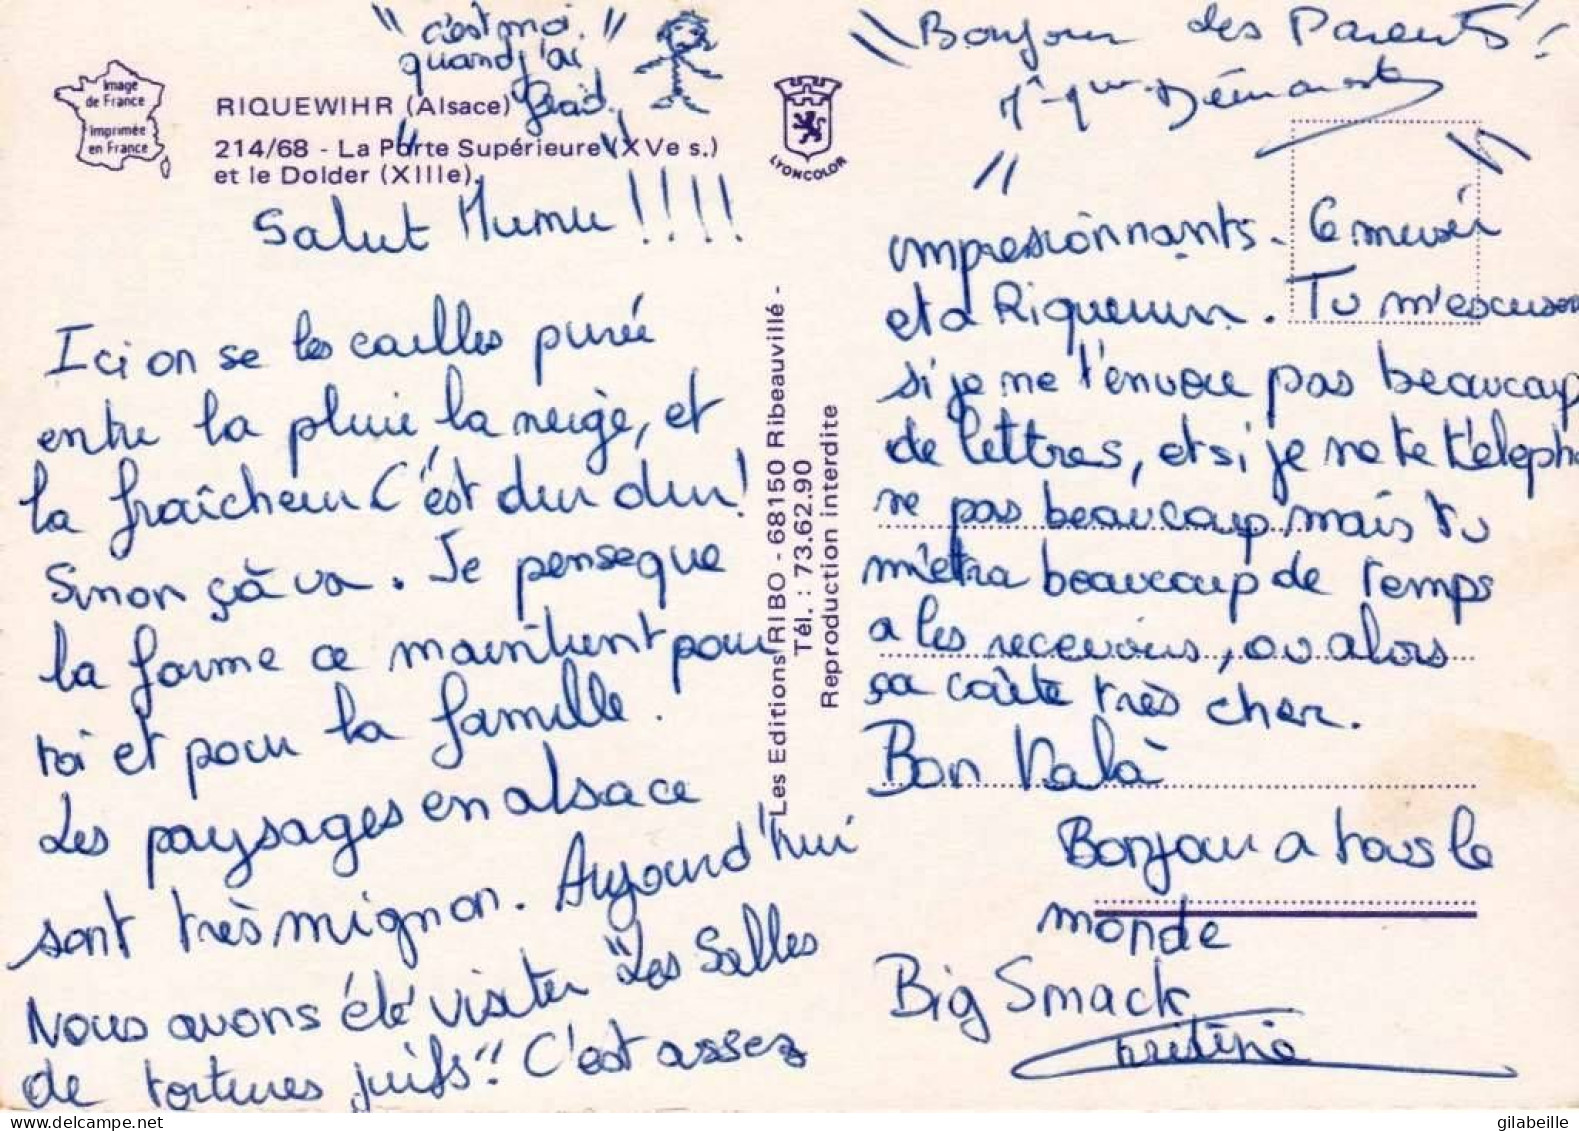 "c'est moi"
quand j'ai
froid,
"Bonjour des Parents"!
Image
de France
imprimée
en France
RIQUEWIHR (Alsace)
214/68 - La Porte Supérieure (XVe s.)
et le Dolder (XIIIe).
LYONCOLOR
Salut Mumu !!!!
Ici on se les cailles purée
entre la pluie, la neige, et
la fraîcheur C'est dur dur!
Sinon çà va. Je pense que
la forme ce maintient pour
toi et pour la famille.
Les paysages en alsace
sont très mignon. Aujourd'hui
Nous avons été visiter "Les Salles
de tortures juifs". C'est assez
Les Editions RIBO - 68150 Ribeauvillé -
Tél. : 73.62.90
Reproduction interdite
impresionnants. Ce musée
et a Riquewir. Tu m'excuseras
si je ne t'envoie pas beaucoup
de lettres, et si je ne te télépho
ne pas beaucoup mais tu
métra beaucoup de temps
a les recevoirs, ou alors
ça coûte très cher.
Bon Voilà
Bonjour a tous le
monde
Big Smack
Christine
gilabeille
www.delcampe.net